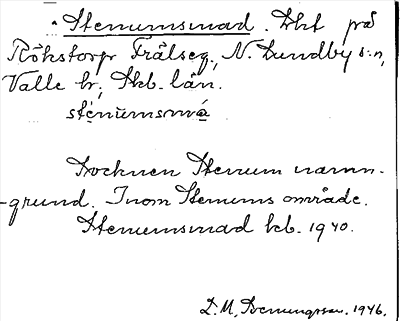 Stenumsmad. Lht på
Rökstorp Frälseg., N. Lundby s:n,
Valle hd, Skb. län.
stènumsmá
Socknen Stenum namn-
-grund. Inom Stenums område.
Stenumsmad kb. 1940.
D. M. 1946.